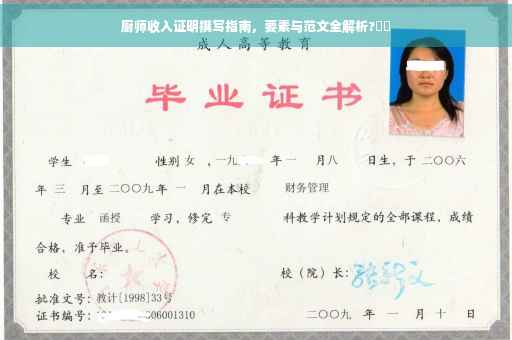 厨师收入证明撰写指南，要素与范文全解析?
成人高等教育
毕业证书
学生 性别 女 ，一九 年 一 月八 日生，于 二〇〇六
年 三 月至 二〇〇九年 一 月在本校 财务管理
专业 函授 学习，修完 专 科教学计划规定的全部课程，成绩
合格，准予毕业。
校 名： 校（院）长：
批准文号：教计[1998]33号
证书编号： 6006001310 二〇〇九 年 一 月 十 日